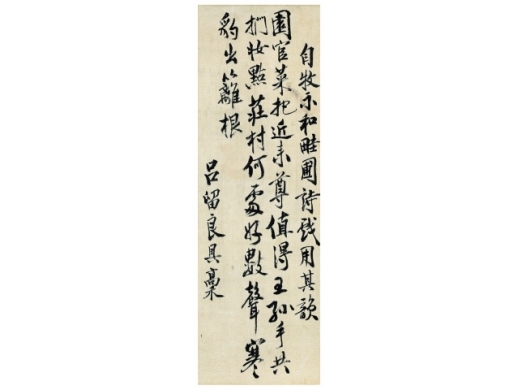 自牧示和畦圃詩戲用其韻
園官菜把近來尊值得王孫手共
捫妝點莊村何處好數聲寒
豹出籬根
呂留良具藁